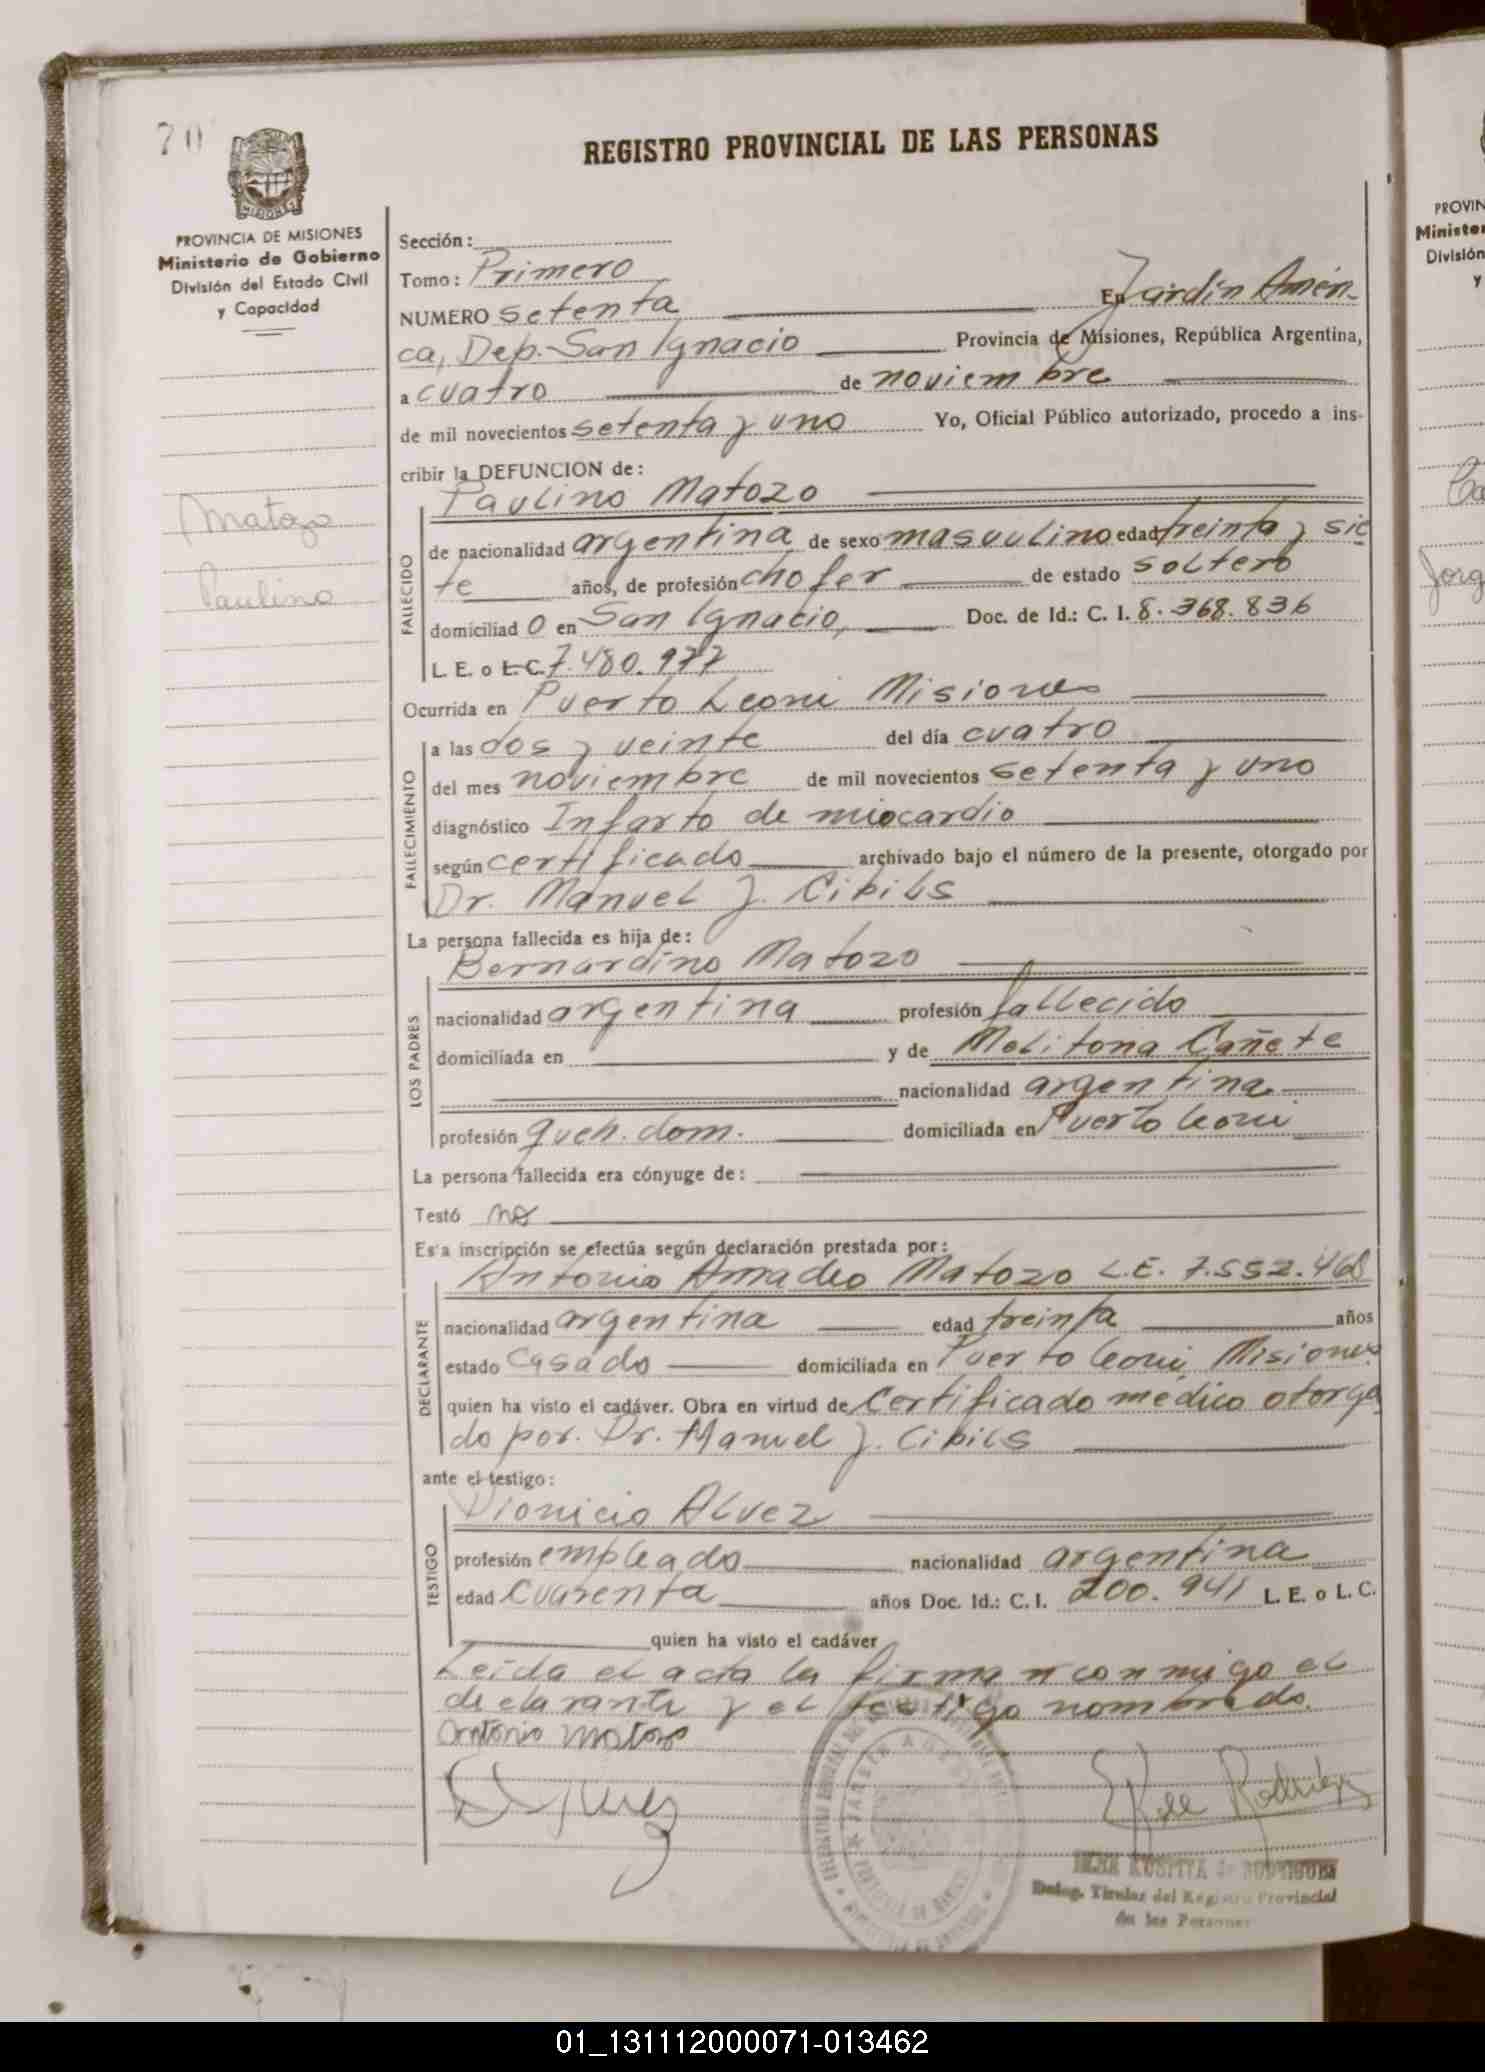 70
REGISTRO PROVINCIAL DE LAS PERSONAS
PROVINCIA DE MISIONES
Ministerio de Gobierno
División del Estado Civil
y Capacidad
Matozo
Paulino
Sección:
Tomo: Primero
NUMERO setenta En Jardín Améri-
ca, Dep. San Ignacio Provincia de Misiones, República Argentina,
a cuatro de noviembre
de mil novecientos setenta y uno Yo, Oficial Público autorizado, procedo a ins-
cribir la DEFUNCION de:
Paulino Matozo
FALLECIDO
de nacionalidad argentina de sexo masculino edad treinta y sie
te años, de profesión chofer de estado soltero
domiciliad o en San Ignacio, Doc. de Id.: C. I. 8.368.836
L. E. o L. C. 7.480.977
Ocurrida en Puerto Leoni Misiones
FALLECIMIENTO
a las dos y veinte del día cuatro
del mes noviembre de mil novecientos setenta y uno
diagnóstico Infarto de miocardio
según certificado archivado bajo el número de la presente, otorgado por
Dr. Manuel J. Cibils
La persona fallecida es hija de:
Bernardino Matozo
LOS PADRES
nacionalidad argentina profesión fallecido
domiciliada en y de Melitona Cañete
nacionalidad argentina
profesión queh. dom. domiciliada en Puerto Leoni
La persona fallecida era cónyuge de:
Testó no
Esta inscripción se efectúa según declaración prestada por:
Antonio Amadeo Matozo L.E. 7.552.468
DECLARANTE
nacionalidad argentina edad treinta años
estado casado domiciliada en Puerto Leoni Misiones
quien ha visto el cadáver. Obra en virtud de Certificado médico otorga
do por. Dr. Manuel J. Cibils
ante el testigo:
Dionicio Alvez
TESTIGO
profesión empleado nacionalidad argentina
edad cuarenta años Doc. Id.: C. I. 200.941 L. E. o L. C.
quien ha visto el cadáver
Leida el acta la firman conmigo el
declarante y el testigo nombrado.
Antonio Matozo
Rodríguez
Deleg. Titular del Registro Provincial
de las Personas
PROVIN
Minister
División
y
Jorg
01_131112000071-013462